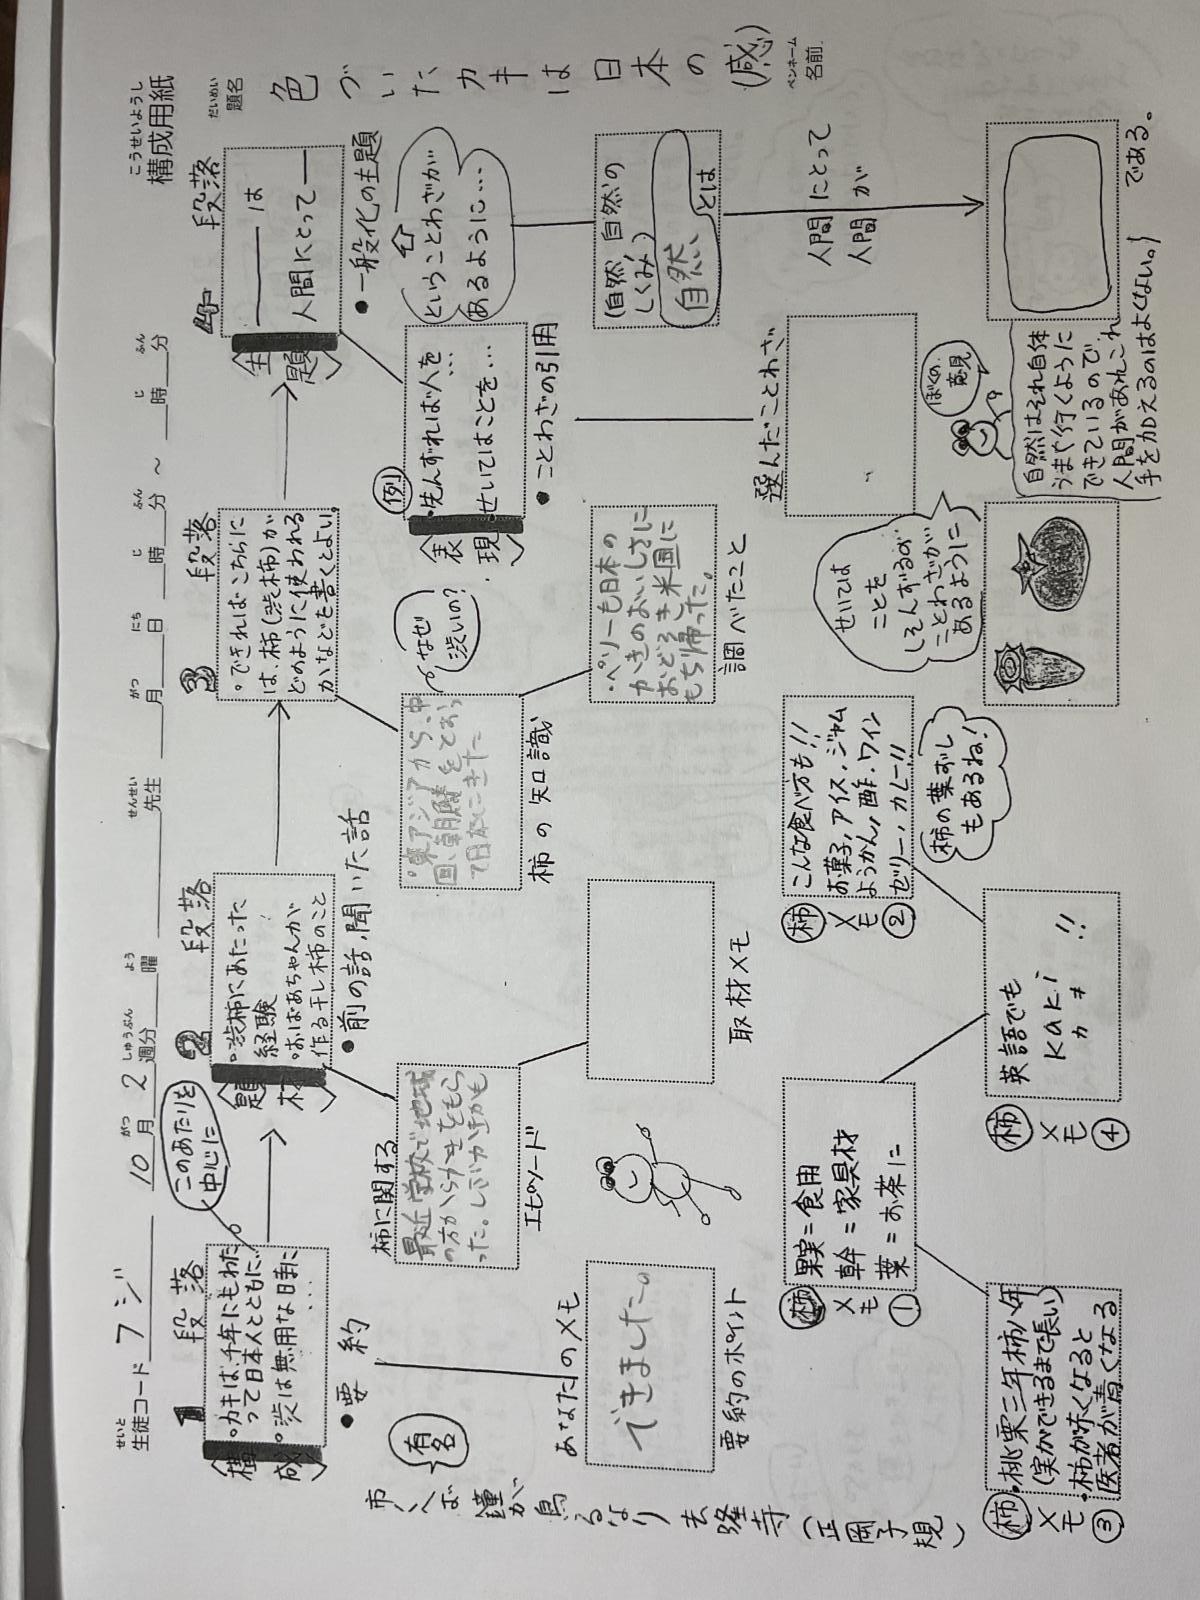 こうせいようし
構成用紙
せいと
生徒コード フジ
10月2週分 曜 先生 月 日 時 分 ～ 時 分
がつ しゅうぶん よう せんせい がつ にち じ ふん じ ふん
だいめい
題名
色づいたカキは日本の(感)
ペンネーム
名前
1 段落
〈構成〉
・カキは、千年にもわた
って日本人とともに…
・渋は無用な日時に
…
・要約
このあたりを
中心に
2 段落
〈題材〉
・渋柿にあたった
経験
・おばあちゃんが
作る干し柿のこと
・前の話、聞いた話
3 段落
・できればこちらに
は、柿(渋柿)が
どのように使われる
かなどを書くとよい。
4 段落
〈主題〉
は
人間にとって
・一般化の主題
有名
あなたのメモ
できましたー。
要約のポイント
柿に関する
最近学校で地域
の方からかきをもら
った。しぶかきかも
エピソード
取材メモ
・東アジアから、中
国、朝鮮をとおっ
て日本にきた
柿の知識
なぜ
渋いの?
・ペリーも日本の
かきのおいしさに
おどろき米国に
もち帰った。
調べたこと
〈表現〉
(例)
・先んずれば人を
…
・せいてはことを…
・ことわざの引用
選んだことわざ
ということわざが
あるように…
(自然、自然の
しくみ)
自然、とは
人間にとって
人間が
である。
ぼくの
意見
自然はそれ自体
うまく行くように
できているので
人間があれこれ
手を加えるのはよくない。
せいては
ことを
しそんずるの
ことわざが
あるように
柿メモ①
果実=食用
幹=家具材
葉=お茶に
柿メモ②
こんな食べ方も!!
お菓子,アイス,ジャム
ようかん,酢・ワイン
ゼリー,カレー!!
柿の葉ずし
もあるね!
柿メモ③
・桃栗三年柿八年
(実ができるまで長い)
・柿が赤くなると
医者が青くなる
柿メモ④
英語でも
kaki
カキ
!!
市くへば鐘が鳥るなり 去隆寺(正岡子規)